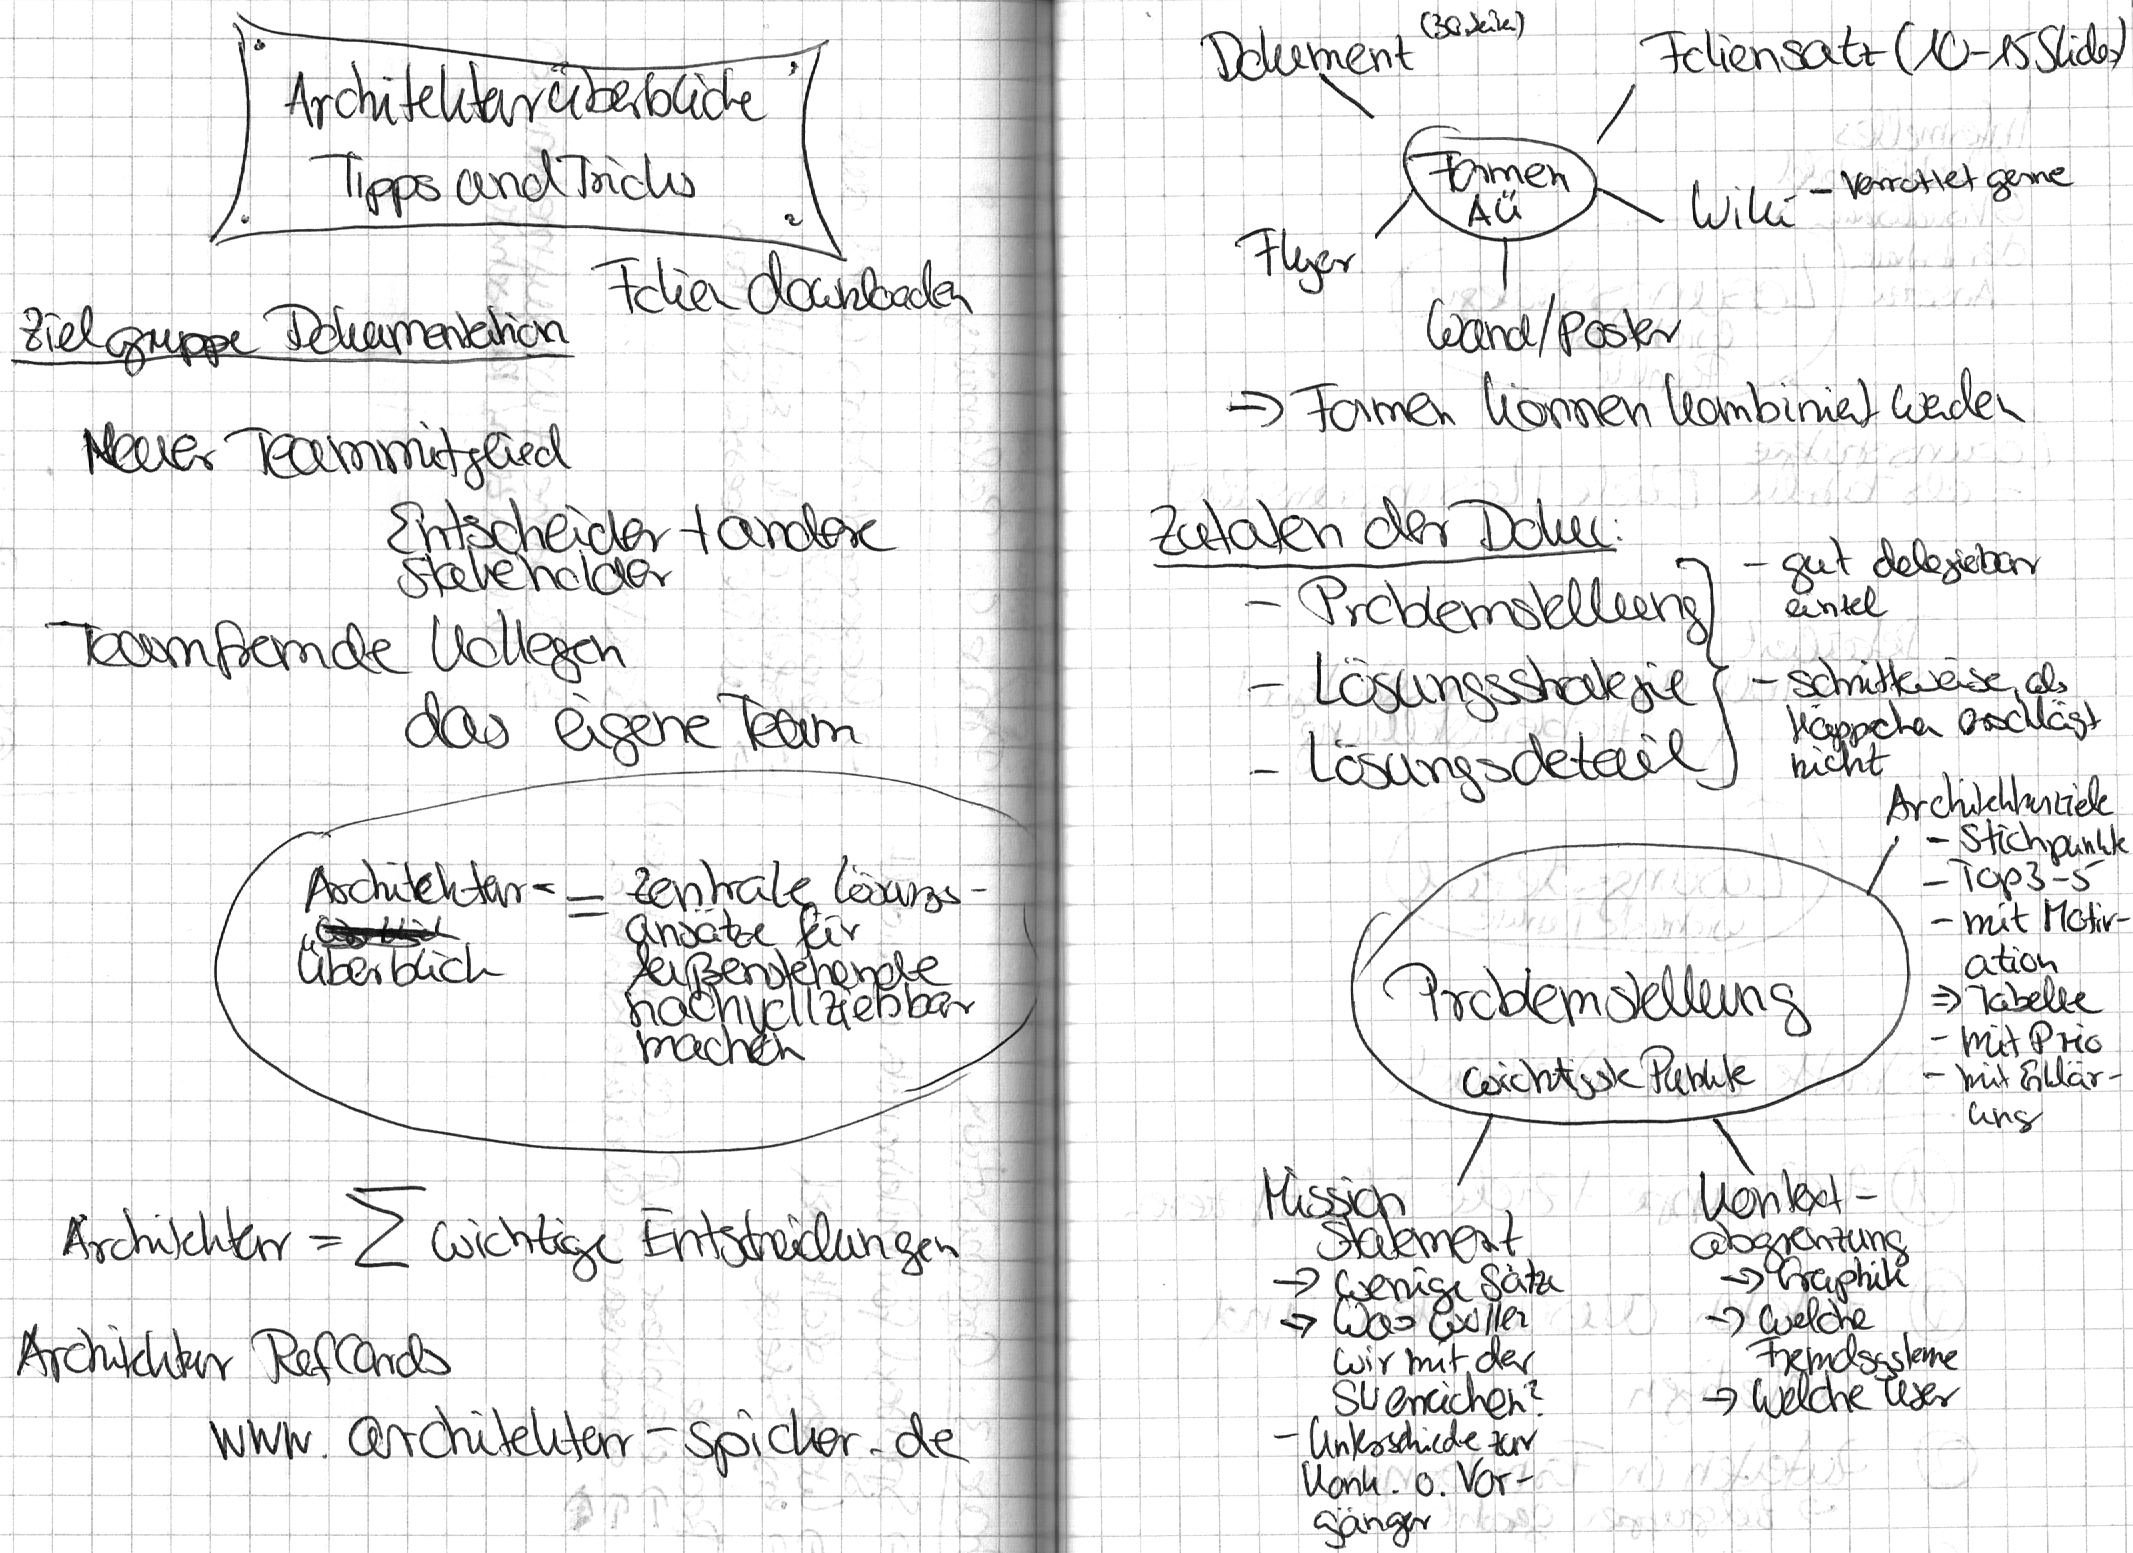 Architekturüberblicke
Tipps and Tricks
Folien downloaden
Zielgruppe Dokumentation
Neuer Teammitglied
Entscheider + andere
Stakeholder
Teamfremde Kollegen
das eigene Team
Architektur-
überblick
= zentrale Lösungs-
ansätze für
Außenstehende
nachvollziehbar
machen
Architektur = ∑ wichtige Entscheidungen
Architektur RefCards
www.architektur-spicker.de
Dokument (30 Seiten)
Foliensatz (10-15 Slides)
Formen
AÜ
Wiki - verrottet gerne
Flyer
Wand/Poster
⇒ Formen können kombiniert werden
Zutaten der Doku:
- Problemstellung
- Lösungsstrategie
- Lösungsdetail
- gut delegierbar
einzel
- schrittweise, als
Häppchen erschlägt
nicht
Problemstellung
wichtigste Punkte
Architekturziele
- Stichpunkte
- Top 3-5
- mit Motiv-
ation
⇒ Tabelle
- mit Prio
- mit Erklär-
ung
Mission
Statement
→ wenige Sätze
⇒ Was wollen
wir mit der
SW erreichen?
- Unterschiede zur
Konk. o. Vor-
gänger
Kontext-
abgrenzung
→ Graphik
→ Welche
Fremdsysteme
→ Welche User